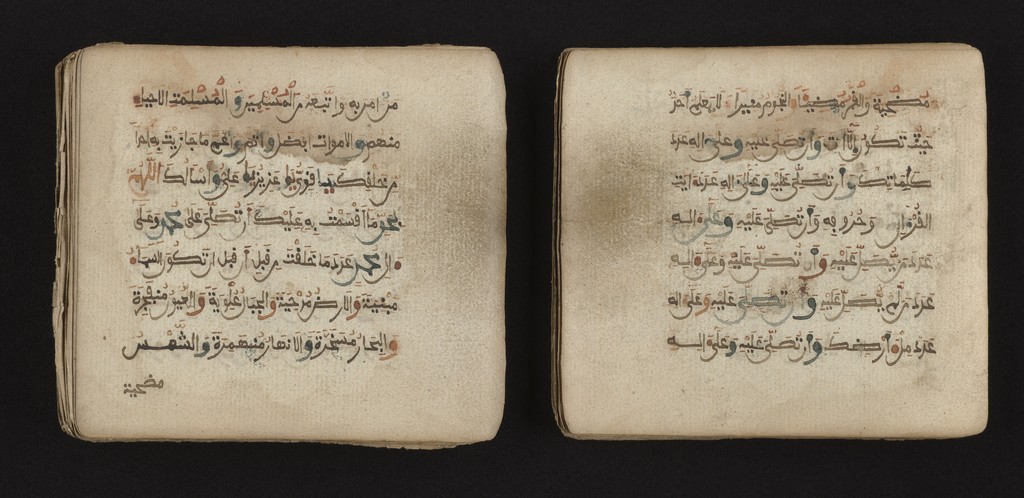 من امن به واتبعه من المسلمين والمسلمت الاحياء
منهم والاموات ما جازيت به احدا
من خلقك يا قوي يا عزيز يا علي وأسالك اللهم
بحق ما اقسمت به عليك أن تصلي على محمد وعلى
ال محمد عدد ما خلقت من قبل أن تكون السماء
مبنية والارض مدحية والجبال علوية والعيون منفجرة
والبحار مسخرة والانهار منهمرة والشمس
مضحية
مضحية والقمر مضيئا والنجوم منيرا لا يعلم احد
حيث تكون إلا انت وأن تصلي عليه وعلى اله عدد
كلماتك وأن تصلي عليه وعلى اله عدد ايت
القرءان وحروفه وأن تصلي عليه وعلى اله
عدد من يصلي عليه وأن تصلي عليه وعلى اله
عدد من لم يصل عليه وأن تصلي عليه وعلى اله
عدد ملء أرضك وأن تصلي عليه وعلى اله